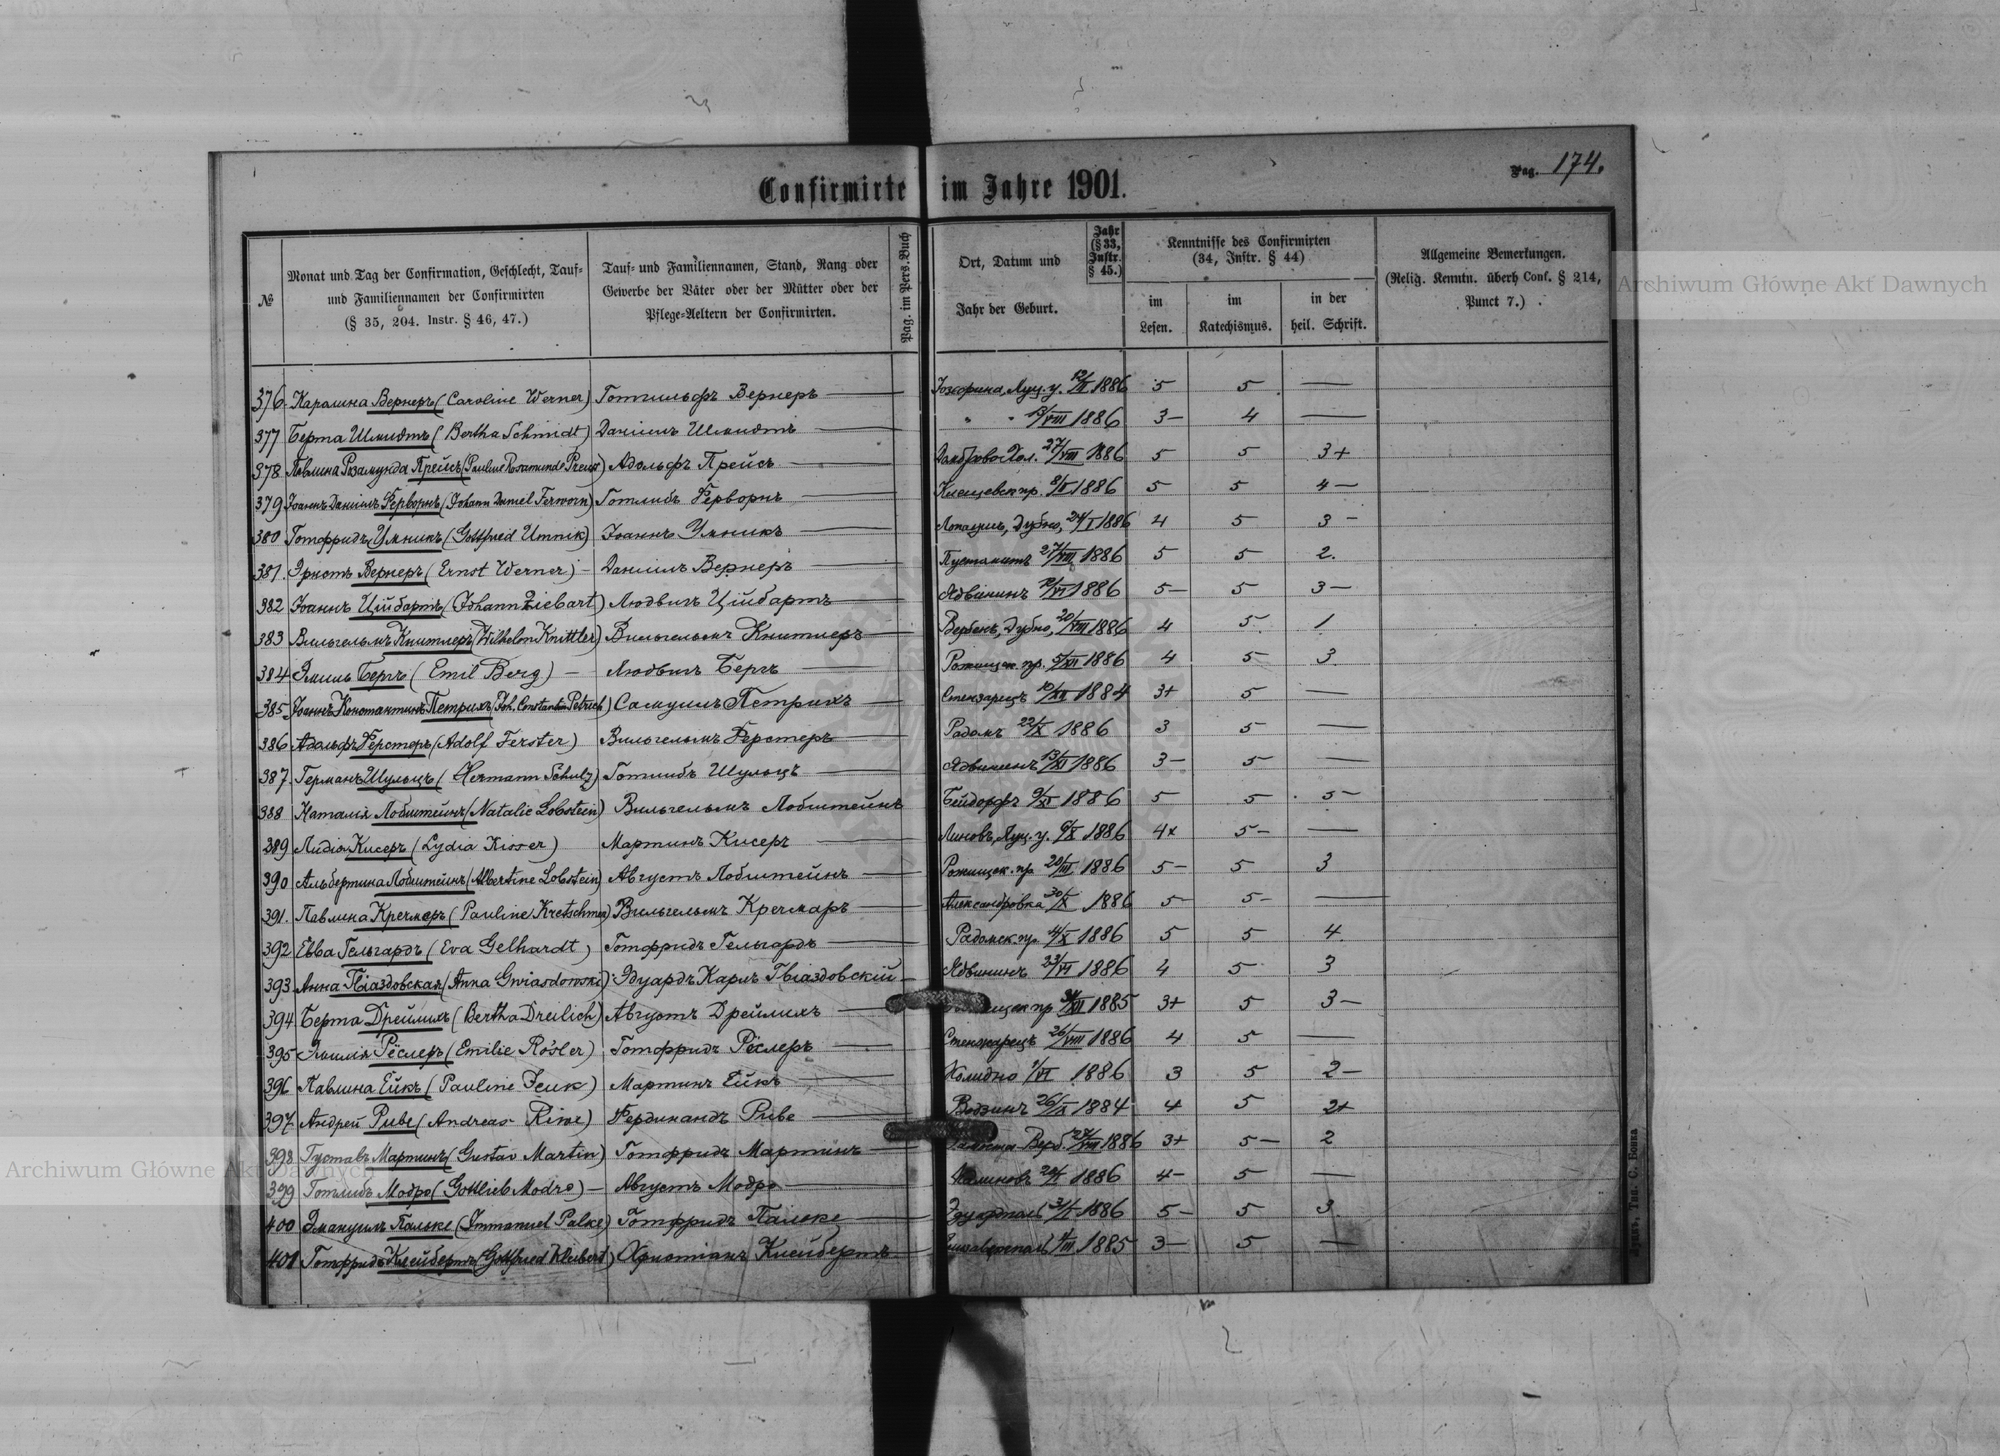 Pag. 174.
Confirmirte im Jahre 1901.
№
Monat und Tag der Confirmation, Geschlecht, Tauf-
und Familiennamen der Confirmirten
(§ 35, 204. Instr. § 46, 47.)
Tauf- und Familiennamen, Stand, Rang oder
Gewerbe der Väter oder der Mütter oder der
Pflege-Aeltern der Confirmirten.
Pag. im Pers.-Buch
Ort, Datum und
Jahr der Geburt.
Jahr
(§ 33,
Instr.
§ 45.)
Kenntnisse des Confirmirten
(34, Instr. § 44)
im
Lesen.
im
Katechismus.
in der
heil. Schrift.
Allgemeine Bemerkungen.
(Relig. Kenntn. überh Conf. § 214,
Punct 7.)
376. Каралина Вернеръ (Caroline Werner) Готтильфъ Вернеръ — Луц. у. 12/II 1886 5 5 —
377 Берта Шмидтъ (Bertha Schmidt) Данiилъ Шмидтъ — " " /VIII 1886 3— 4 —
378. Павлина Розамунда Прейсъ (Pauline Rosamunde Preuss) Адольфъ Прейсъ — 27/VIII 1886 5 5 3+
379 Iоаннъ Данiилъ Ферворнъ (Johann Daniel Ferworn) Готлибъ Ферворнъ — пр. 8/II 1886 5 5 4—
380 Готфридъ Умникъ (Gottfried Umnik) Iоаннъ Умникъ — Дубно, 24/I 1886 4 5 3—
381. Эрнстъ Вернеръ (Ernst Werner) — Данiилъ Вернеръ — 27/VIII 1886 5 5 2.
382 Iоаннъ Цiибартъ (Johann Ziebart) Людвигъ Цiибартъ — Ядвининъ /VI 1886 5— 5 3—
383 Вильгельмъ Книтлеръ (Wilhelm Knittler) Вильгельмъ Книтлеръ — Вербень, Дубно, 20/VIII 1886 4 5. 1
384 Эмиль Бергъ (Emil Berg) — Людвигъ Бергъ — Рожищск. пр. 5/XI 1886 4 5 3.
385 Iоаннъ Константинъ Петрихъ (Joh. Constantin Petrich) Самуилъ Петрихъ — 10/XII 1884 3+ 5 —
386 Адольфъ Ферстеръ (Adolf Ferster) Вильгельмъ Ферстеръ — Радомъ 22/X 1886 3 5 —
387. Германъ Шульцъ (Hermann Schulz) Готлибъ Шульцъ — Ядвининъ 13/XI 1886 3— 5 —
388 Наталiя Лобштейнъ (Natalie Lobstein) Вильгельмъ Лобштейнъ 9/XI 1886 5 5 5—
389 Лидiя Кисеръ (Lydia Kisser) Мартинъ Кисеръ — Линовъ, Луц. у. /X 1886 4× 5— —
390 Альбертина Лобштейнъ (Albertine Lobstein) Августъ Лобштейнъ — Рожищск. пр. 20/III 1886 5— 5 3
391. Павлина Кречмеръ (Pauline Kretschmer) Вильгельмъ Кречмаръ — Александровка 30/X 1886 5— 5— —
392 Евва Гельгардъ (Eva Gelhardt) Готфридъ Гельгардъ — Радомск. пр. 4/X 1886 5 5 4.
393. Анна Гвiаздовская (Anna Gwiasdowski) Эдуардъ Карлъ Гвiаздовскiй — Ядвининъ 23/VI 1886 4 5 3
394. Берта Дрейлихъ (Bertha Dreilich) Августъ Дрейлихъ — пр /XII 1885 3+ 5 3—
395 Эмилiя Рёслеръ (Emilie Rösler) Готфридъ Рёслеръ — 26/VIII 1886 4 5 —
396 Павлина Ейкъ (Pauline Jeuk) Мартинъ Ейкъ — /VI 1886 3 5 2—
397. Андрей Риве (Andreas Riwe) Фердинандъ Риве — 26/X 1884 4 5 2+
398 Густавъ Мартинъ (Gustav Martin) Готфридъ Мартинъ — 27/VIII 1886 3+ 5— 2
399 Готлибъ Модро (Gottlieb Modro) — Августъ Модро — 20/I 1886 4— 5 —
400 Эмануилъ Пальке (Immanuel Palke) Готфридъ Пальке — 1886 5— 5 3
401 Готфридъ Клейбертъ (Gottfried Kleibert) Христiанъ Клейбертъ — /III 1885 3— 5 —
Archiwum Główne Akt Dawnych
Archiwum Główne Akt Dawnych